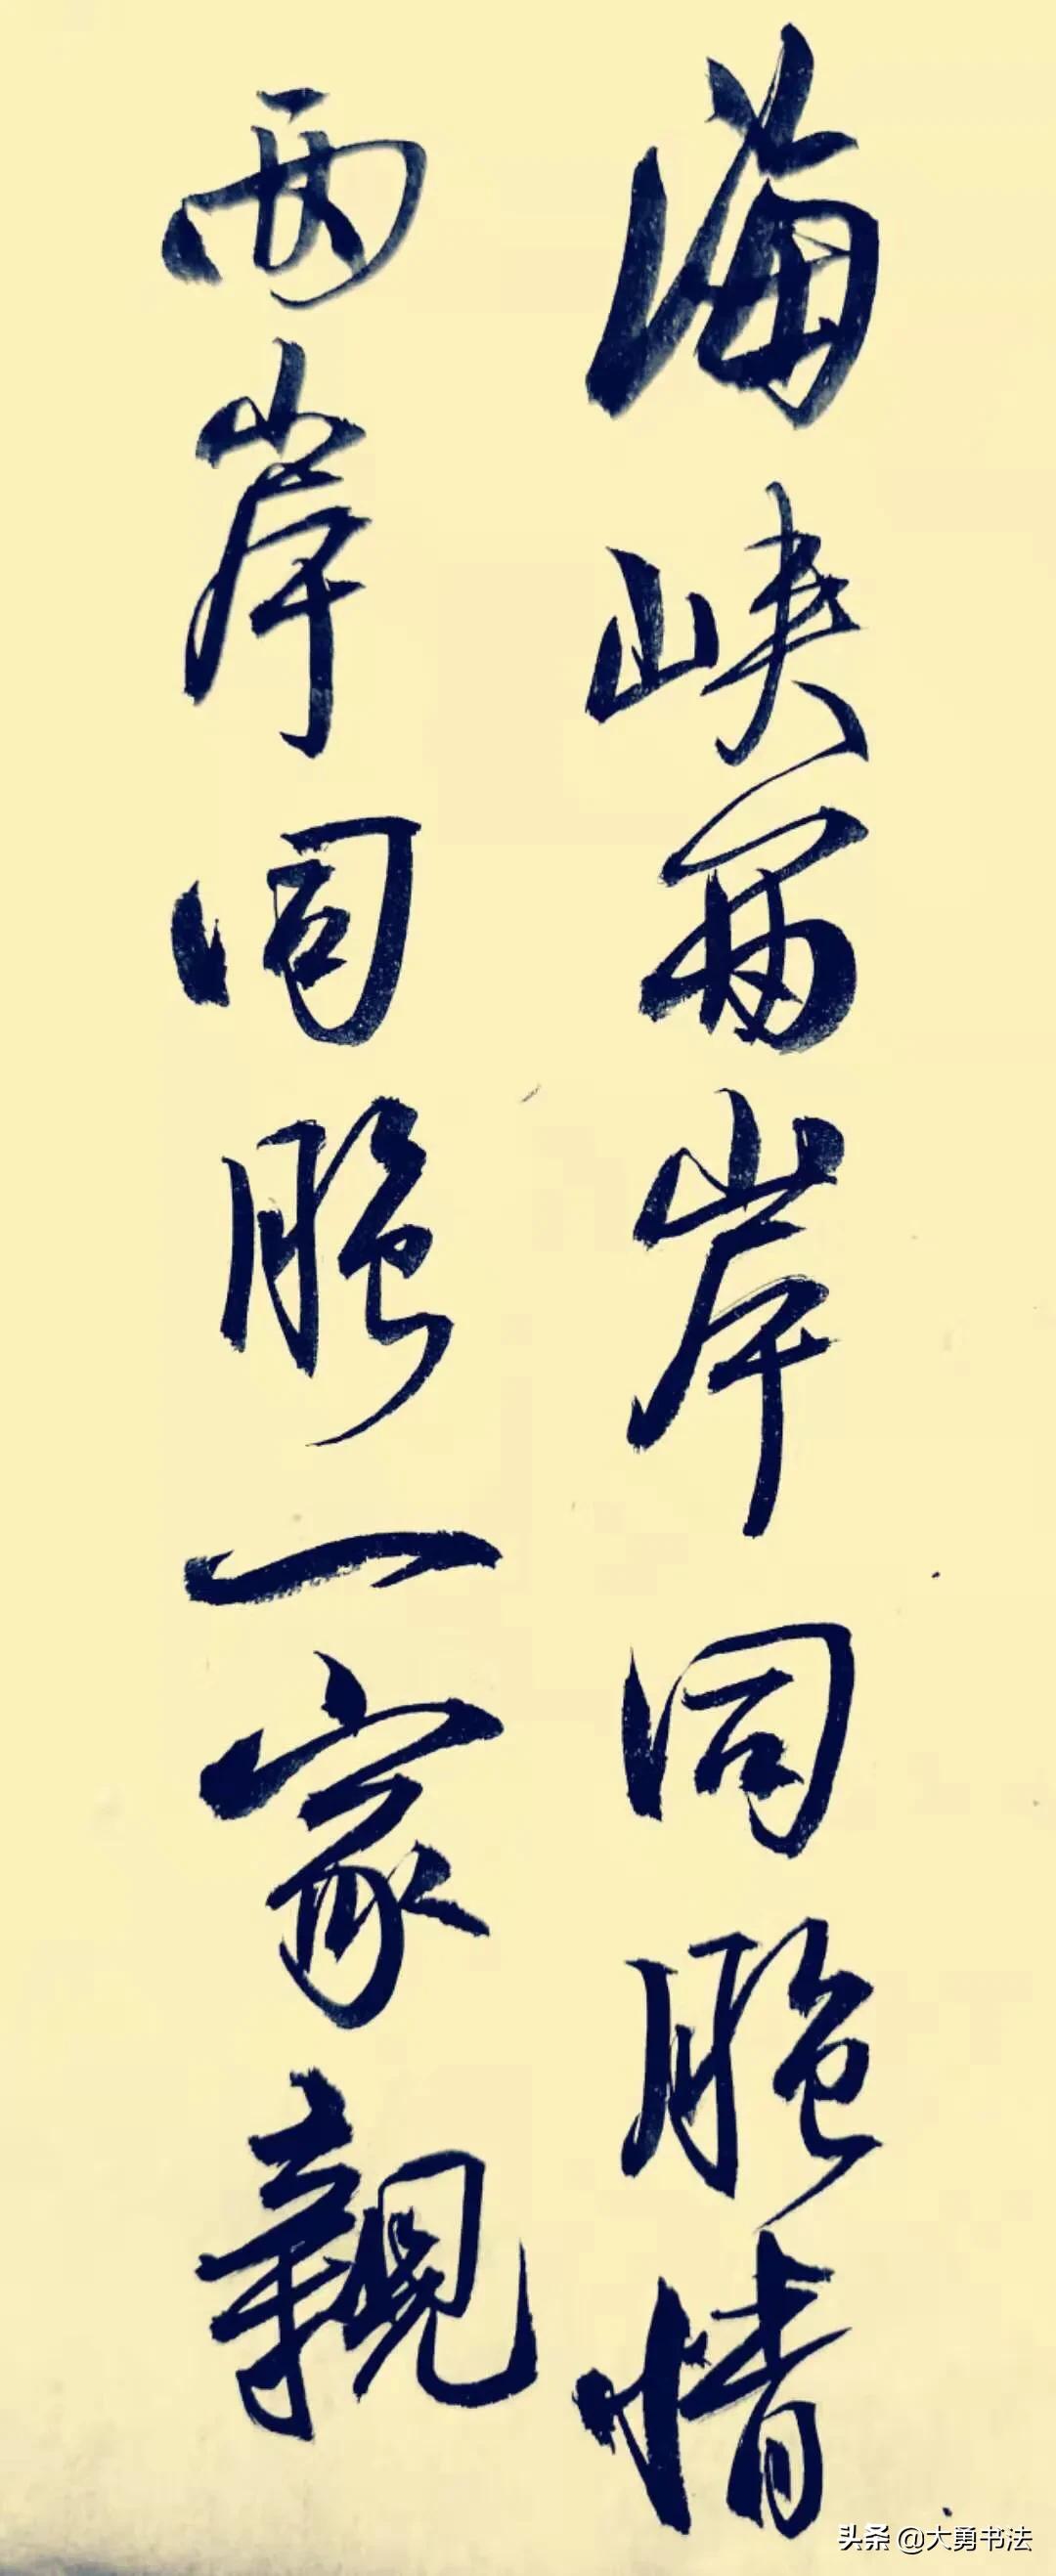 海峡两岸同胞情
两岸同胞一家親
头条 @大勇书法